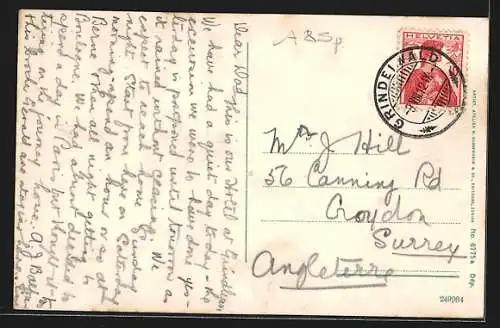 Dear Dad, This is our Hotel at Grindelwald
We have had a quiet day today - the
excursion we were to have done yes-
terday is postponed until tomorrow as
it rained without ceasing. We
expect to reach home Sunday
night. Start from here on Saturday
morning, spend an hour or so at
Berne & then all night getting to
Boulogne. We had almost decided to
spend a day in Paris, but thought it
tiring on the journey home. A.J. Balfour
this
A 3 Sp.
HELVETIA
GRINDELWALD
Mr J Hill
56 Canning Rd
Croydon
Surrey
Angleterre
No. 6775a Dép.
249964